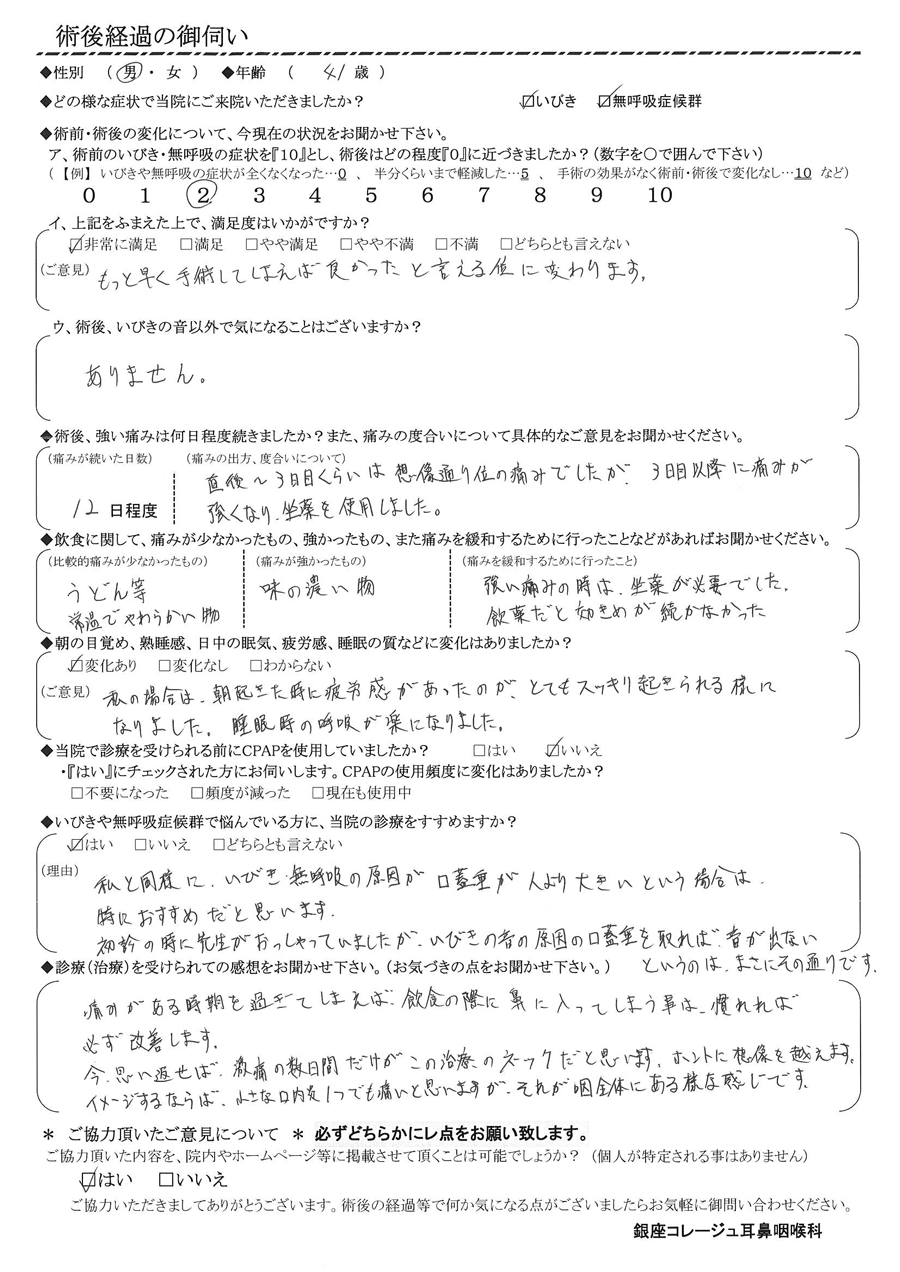 術後経過の御伺い
◆性別 （ 男 ・ 女 ） ◆年齢 （ 41 歳 ）
◆どの様な症状で当院にご来院いただきましたか？ ☑いびき ☑無呼吸症候群
◆術前・術後の変化について、今現在の状況をお聞かせ下さい。
ア、術前のいびき・無呼吸の症状を『10』とし、術後はどの程度『0』に近づきましたか？（数字を〇で囲んで下さい）
（ 【例】 いびきや無呼吸の症状が全くなくなった…0 、 半分くらいまで軽減した…5 、 手術の効果がなく術前・術後で変化なし…10 など）
0 1 2 3 4 5 6 7 8 9 10
イ、上記をふまえた上で、満足度はいかがですか？
☑非常に満足 □満足 □やや満足 □やや不満 □不満 □どちらとも言えない
（ご意見） もっと早く手術してしまえば良かったと言える位に変わります。
ウ、術後、いびきの音以外で気になることはございますか？
ありません。
◆術後、強い痛みは何日程度続きましたか？また、痛みの度合いについて具体的なご意見をお聞かせください。
（痛みが続いた日数） （痛みの出方、度合いについて）
直後～3日目くらいは想像通り位の痛みでしたが、3日目以降に痛みが
12 日程度 強くなり、坐薬を使用しました。
◆飲食に関して、痛みが少なかったもの、強かったもの、また痛みを緩和するために行ったことなどがあればお聞かせください。
（比較的痛みが少なかったもの） （痛みが強かったもの） （痛みを緩和するために行ったこと）
うどん等 味の濃い物 強い痛みの時は、坐薬が必要でした。
常温でやわらかい物 飲薬だと効きめが続かなかった
◆朝の目覚め、熟睡感、日中の眠気、疲労感、睡眠の質などに変化はありましたか？
☑変化あり □変化なし □わからない
（ご意見） 私の場合は、朝起きた時に疲労感があったのが、とてもスッキリ起きられる様に
なりました。睡眠時の呼吸が楽になりました。
◆当院で診療を受けられる前にCPAPを使用していましたか？ □はい ☑いいえ
・『はい』にチェックされた方にお伺いします。CPAPの使用頻度に変化はありましたか？
□不要になった □頻度が減った □現在も使用中
◆いびきや無呼吸症候群で悩んでいる方に、当院の診療をすすめますか？
☑はい □いいえ □どちらとも言えない
（理由） 私と同様に、いびき・無呼吸の原因が口蓋垂が人より大きいという場合は、
特におすすめだと思います。
初診の時に先生がおっしゃっていましたが、いびきの音の原因の口蓋垂を取れば、音が出ない
というのは、まさにその通りです。
◆診療（治療）を受けられての感想をお聞かせ下さい。（お気づきの点をお聞かせ下さい。）
痛みがある時期を過ぎてしまえば、飲食の際に鼻に入ってしまう事は、慣れれば
必ず改善します。
今、思い返せば、激痛の数日間だけがこの治療のネックだと思います。ホントに想像を越えます。
イメージするならば、小さな口内炎1つでも痛いと思いますが、それが咽全体にある様な感じです。
＊ ご協力頂いたご意見について ＊ 必ずどちらかにレ点をお願い致します。
ご協力頂いた内容を、院内やホームページ等に掲載させて頂くことは可能でしょうか？ （個人が特定される事はありません）
☑はい □いいえ
ご協力いただきましてありがとうございます。術後の経過等で何か気になる点がございましたらお気軽に御問い合わせください。
銀座コレージュ耳鼻咽喉科